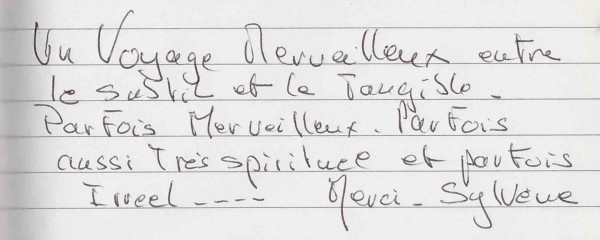 Un Voyage Merveilleux entre
le subtil et le Tangible.
Parfois Merveilleux. Parfois
aussi Très spirituel et parfois
Irréel ---- Merci - Sylvene